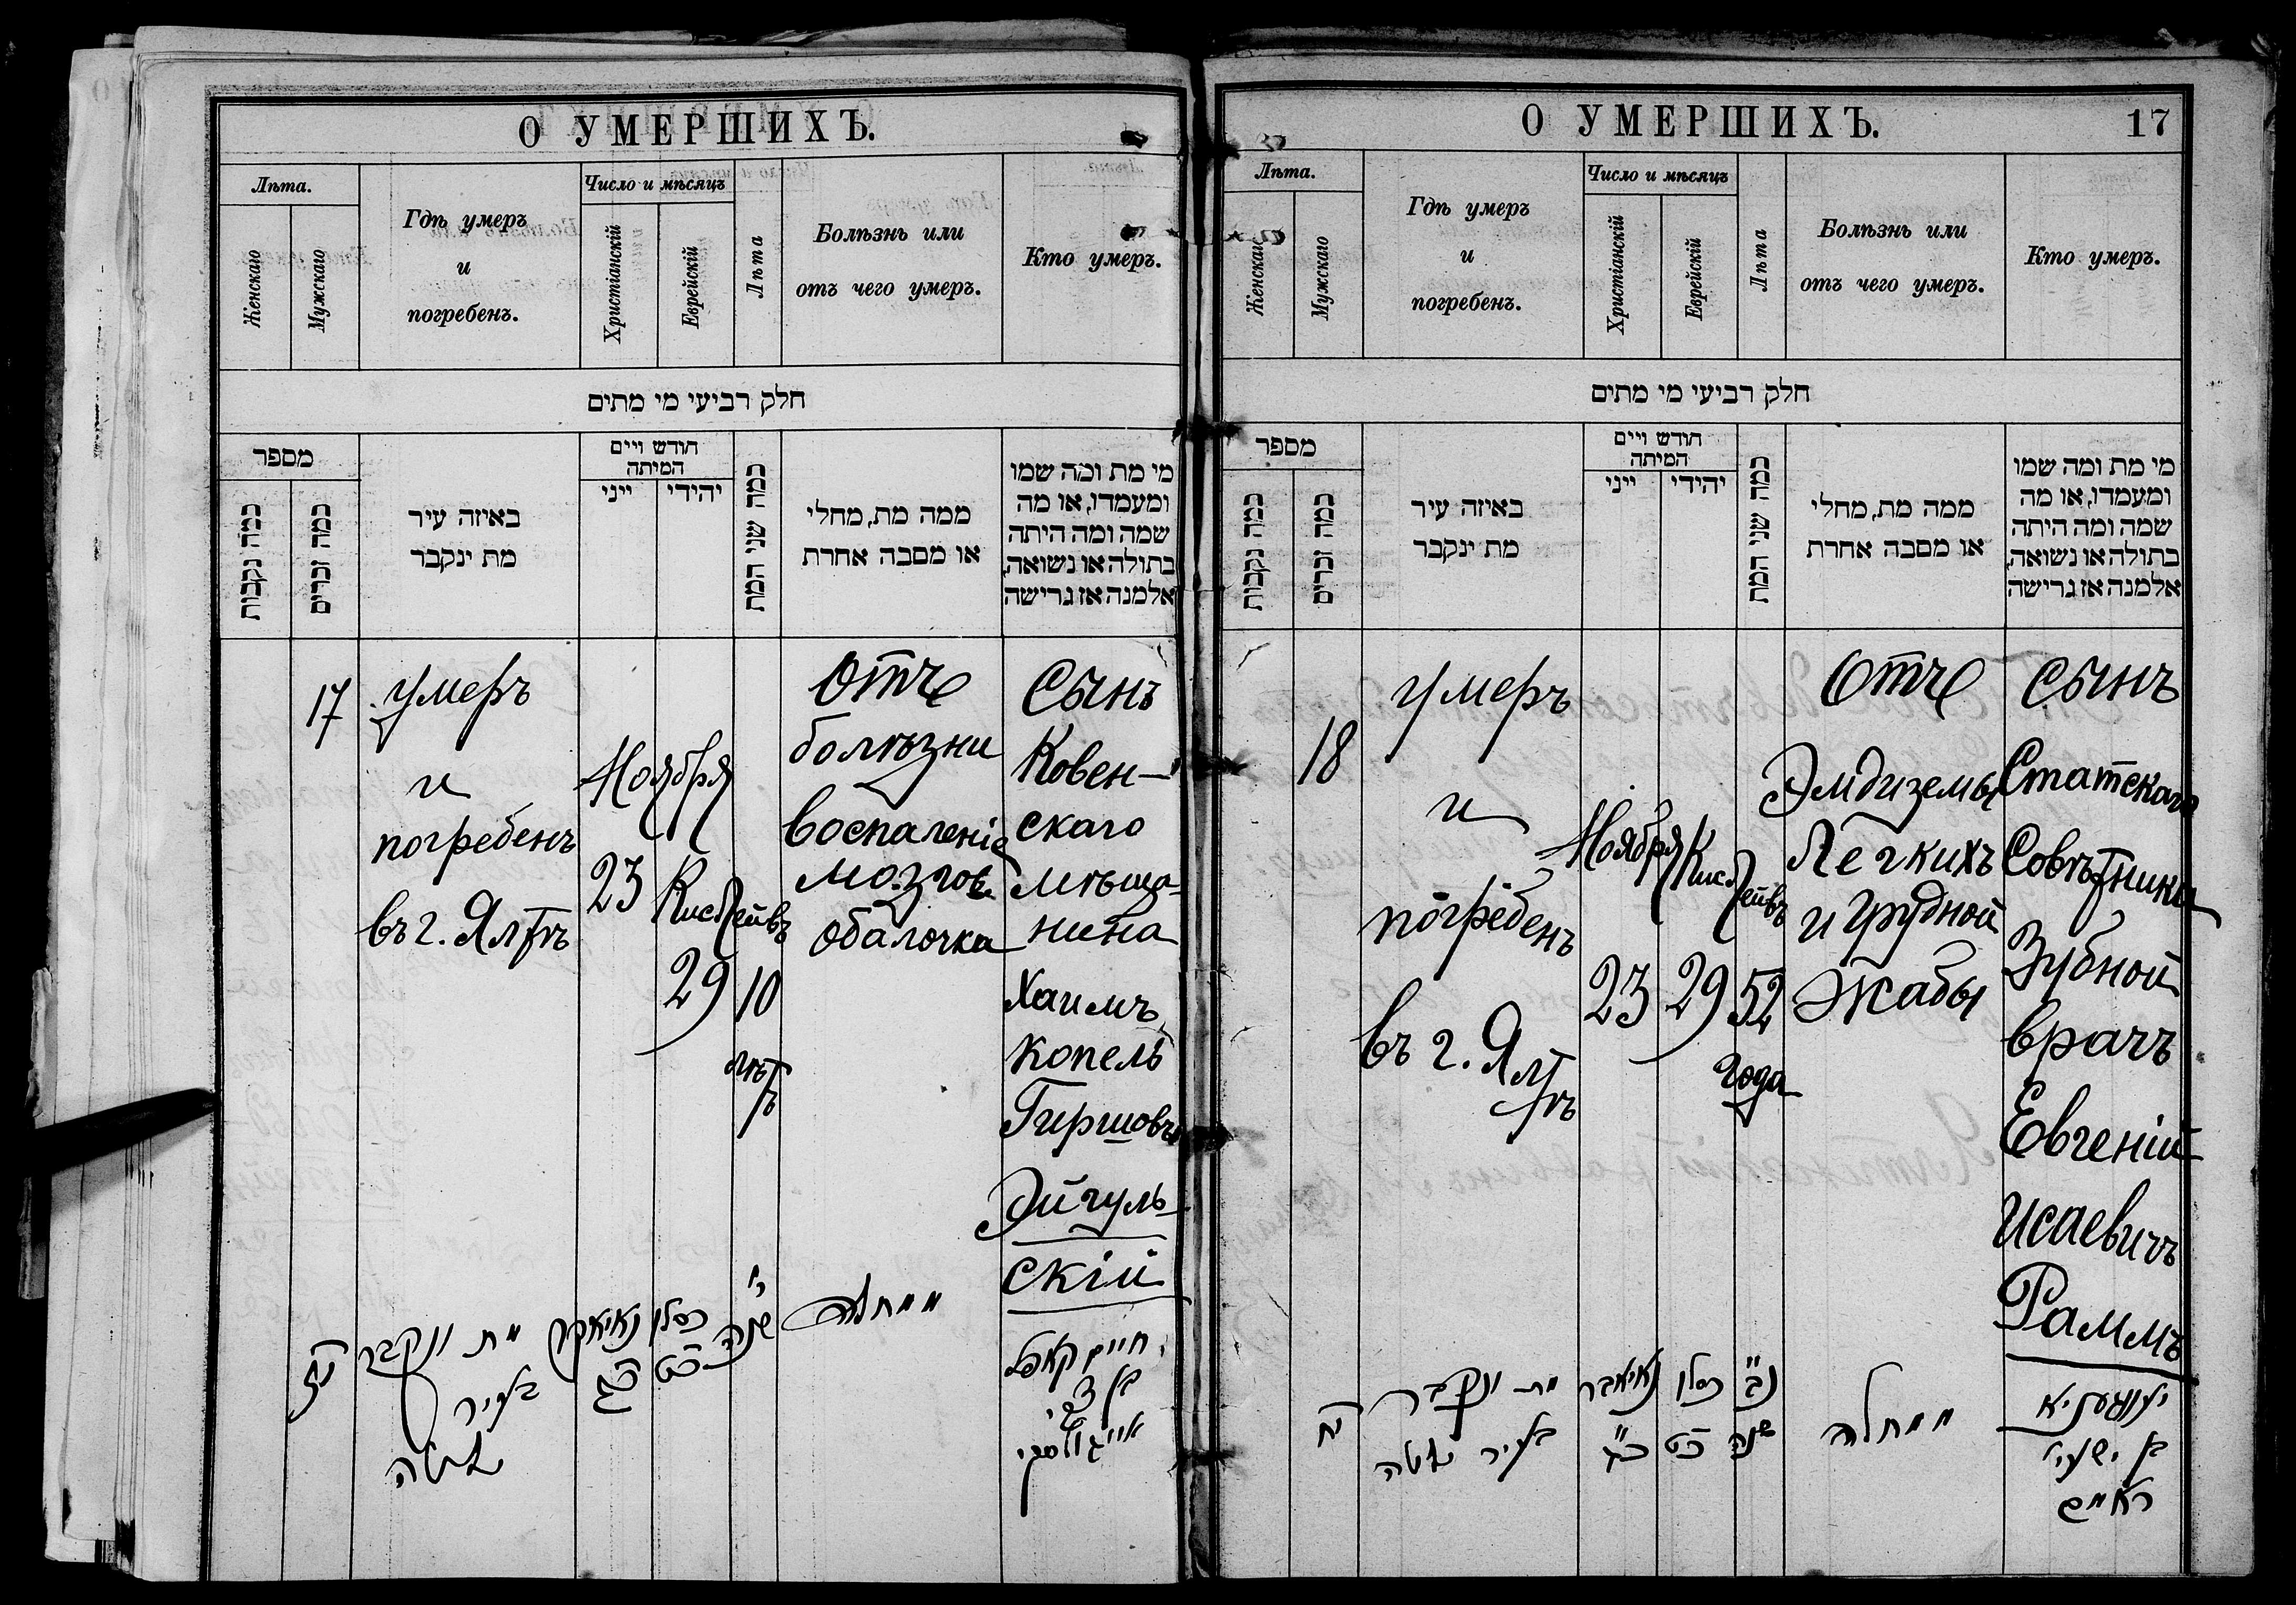 О УМЕРШИХЪ.
Лѣта.
Женскаго
Мужскаго
Гдѣ умеръ
и
погребенъ.
Число и мѣсяцъ
Христіанскій
Еврейскій
Лѣта
Болѣзнь или
отъ чего умеръ.
Кто умеръ.
חלק רביעי מי מתים
מספר
כמה נקבות
כמה זכרים
באיזה עיר
מת ינקבר
חודש ויים
המיתה
ייני
יהידי
כמה שני המת
ממה מת, מחלי
או מסבה אחרת
מי מת ומה שמו
ומעמדו, או מה
שמה ומה היתה
בתולה או נשואה,
אלמנה אז גרישה
17
умеръ
и
погребенъ
въ г. Ялтѣ
Ноября
23
Кислейвъ
29
10
лѣтъ
Отъ
болѣзни
воспаленіе
мозгов.
обалочка
Сынъ
Ковен-
скаго
мѣща-
нина
Хаимъ
Копель
Гиршовъ
Эйгуль-
скій
מת ונקבר
בעיר
יאלטה
נאיאבר
כג
כסלו
כט
י'
שנה
ממחלה
חיים קאפל
בן צבי
אייגולסקי
О УМЕРШИХЪ.
17
Лѣта.
Женскаго
Мужскаго
Гдѣ умеръ
и
погребенъ.
Число и мѣсяцъ
Христіанскій
Еврейскій
Лѣта
Болѣзнь или
отъ чего умеръ.
Кто умеръ.
חלק רביעי מי מתים
מספר
כמה נקבות
כמה זכרים
באיזה עיר
מת ינקבר
חודש ויים
המיתה
ייני
יהידי
כמה שני המת
ממה מת, מחלי
או מסבה אחרת
מי מת ומה שמו
ומעמדו, או מה
שמה ומה היתה
בתולה או נשואה,
אלמנה אז גרישה
18
умеръ
и
погребенъ
въ г. Ялтѣ
Ноября
23
Кислейвъ
29
52
года
Отъ
Эмдиземы
Легкихъ
и грудной
Жабы
Сынъ
Статскаго
Совѣтника
Зубной
врачъ
Евгеній
Исаевичъ
Раммъ
יח
מת ונקבר
בעיר יאלטה
נאיאבר
כג
כסלו
כט
נב
שנה
ממחלה
בן ישעי'
ראמם